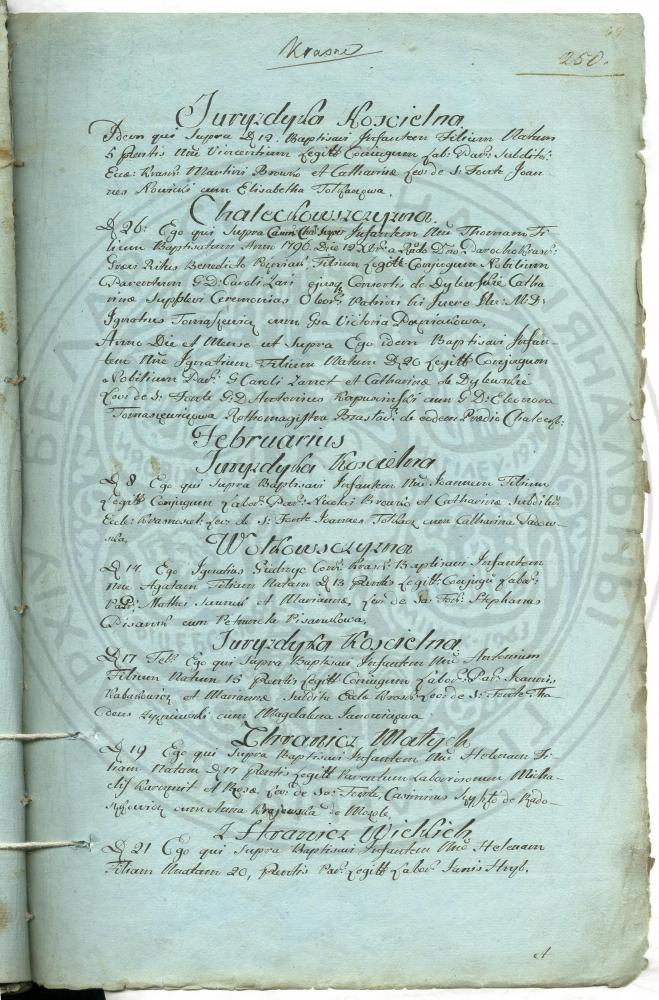 Krasne
250.
Juryzdyka Koscielna
Idem qui Supra D 12. Baptisavi Infantem Filium Natum
5 pntis Nne Vincentium Legitt Conjugum Lab: Par: Subdito:
Ecae: Krasn: Martini Browko et Catharinæ Lev: de S: Fonte Joan
nes Nowicki cum Elisabetha
Chaleckowszczyzna
D 26: Ego qui Supra Infantem Nne Thomam Fi
lium Baptisatum Anno 1796 Die 12 a Rndo Dno Parocho Krasn:
Græci Ritus Benedicto Filium Legitt Conjugum Nobilium
Parentum G D: Caroli Zari ejusq Consortis de Dylewskie Catha
rinæ Supplevi Ceremonias Patrini hi fuere M: D:
Ignatius Tomaszewicz cum Gsa Victoria
Anno Die et Mense ut Supra Ego idem Baptisavi Infan-
tem Nne Ignatium Filium Natum D 20 Legitt Conjugum
Nobilium Par: G Caroli Zarret et Catharinæ de Dylewskie
Lev: de S: Fonte G D: Antonius Kapuscinski cum G D: Eleonora
Tomaszewiczowa Rothomagistra Brasłav: de eodem Predio Chalecz:
Februarius
Juryzdyka Koscielna
D 8 Ego qui Supra Baptisavi Infantem Nne Joannem Filium
Legitt Conjugum Labor: Par: Nicolai Browko et Catharinæ Subdit:
Eccle: Krasnosel: Lev: de S: Fonte Joannes Tołkacz cum Catharina Sacow-
ska,
Wołkowszczyzna
D 14 Ego Ignatius Krasn: Baptisavi Infantem
Nne Agatam Filiam Natam D 13 pntis Legitt: Conjugu Labor:
Par: Mathei et Mariannæ, Lev: de Sa: Fon: Stephanus
Pisaruk cum Petronela Pisarukowa,
Juryzdyka Koscielna
D 17 Feb: Ego qui Supra Baptisavi Infantem Nne Antonium
Filium Natum 15 pntis Legitt Conjugum Labor: Par: Joannis,
et Mariannæ Subditi Eccle Krasn: Lev: de S: Fonte Tha
deus cum Magdalena Janowiczowa
Zhranicz Małych
D 19 Ego qui Supra Baptisavi Infantem Nne Helenam Fi
liam Natam D 17 pntis Legitt Parentum Laboriosorum Micha-
elis et Rosæ Lev: de Sa: Fonte, Casimirus de Rado-
szkowicz cum Anna Krajewska de
Z Hranicz Wielkich
D 21 Ego qui Supra Baptisavi Infantem Nne Helenam
Filiam Natam 20, pntis Par: Legitt Labor: Janis Hryb.